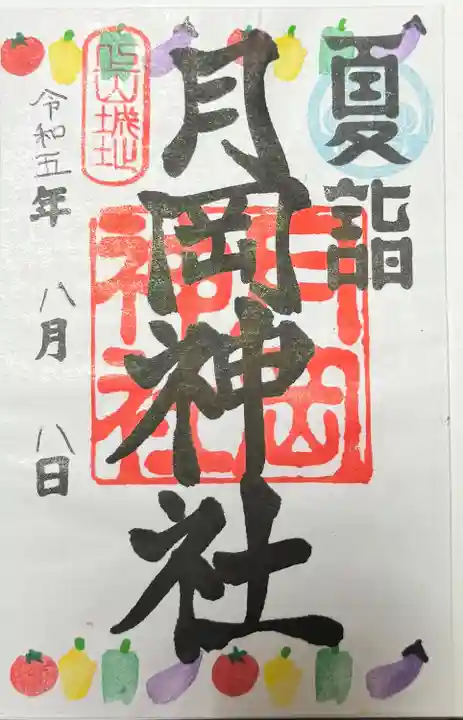 夏詣
月岡神社
月岡
神社
上山城址
令和五年 八月 八日